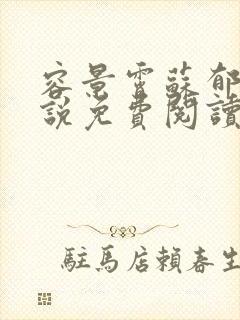 容景霄蘇郁
說免費閱讀
駐馬店賴春生